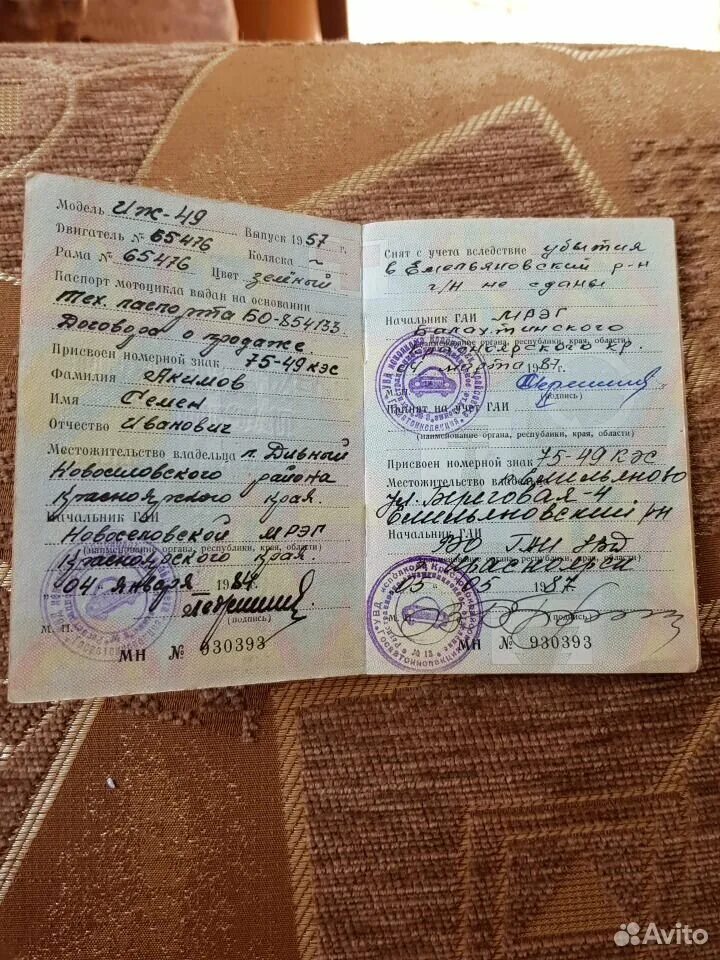 Модель ИЖ-49 Выпуск 1957 г.
Двигатель № 65476 Коляска ~
Рама № 65476 Цвет зелёный
Паспорт мотоцикла выдан на основании
тех. паспорта БО-854133
Договора о продаже.
Присвоен номерной знак 75-49 КЭС
Фамилия Акимов
Имя Семен
Отчество Иванович
Местожительство владельца п. Дивный
Новоселовского района
Красноярского края.
Начальник ГАИ
Новоселовской МРЭГ
(наименование органа, республики, края, области)
Красноярского края.
04 января 1984 г.
М. П. (подпись)
МН № 930393
Снят с учета вследствие убытия
в Емельяновский р-н
г/н не сданы
Начальник ГАИ МРЭГ
Балахтинского
(наименование органа, республики, края, области)
Красноярского кр.
марта 1987 г.
М. П. (подпись)
Принят на учет ГАИ
(наименование органа, республики, края, области)
Присвоен номерной знак 75-49 КЭС
Местожительство владельца
ул. Береговая-4
Емильяновский рн
Начальник ГАИ
ГАИ
(наименование органа, республики, края, области)
05 1987
М. П. (подпись)
МН № 930393
Avito